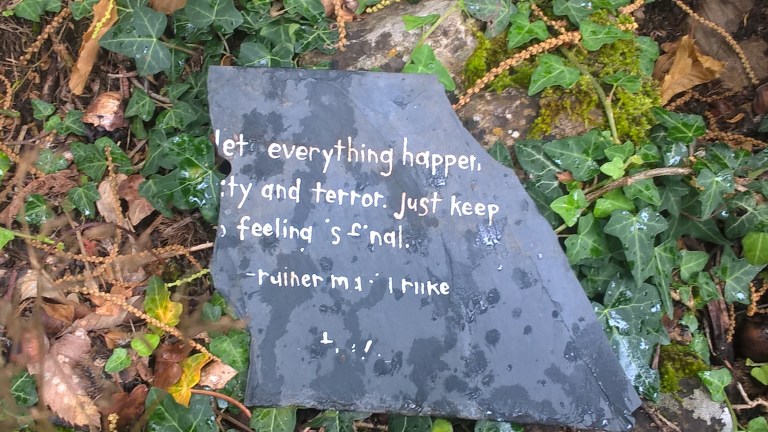 let everything happen,
ity and terror. Just keep
feeling is final.
-rainer maria rilke